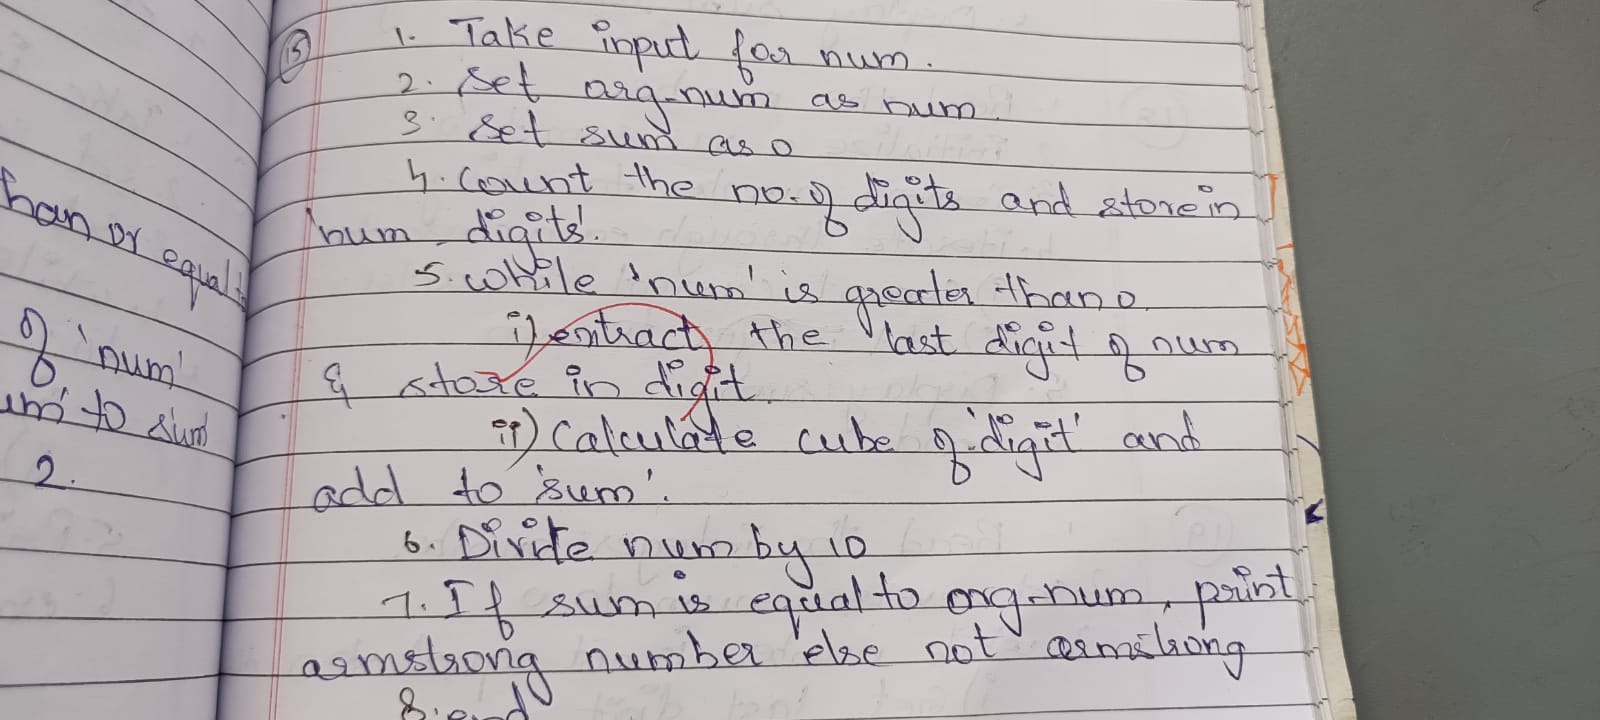 han or equal to
of 'num'
um' to sum
2.
15
1. Take input for num.
2. Set org-num as num.
3. Set sum as 0
4. Count the no. of digits and store in
'num_digits'.
5. While 'num' is greater than 0
i) extract the last digit of num
& store in digit.
ii) Calculate cube of 'digit' and
add to 'sum'.
6. Divide num by 10
7. If sum is equal to org-num, print
armstrong number else not armstrong
8. end